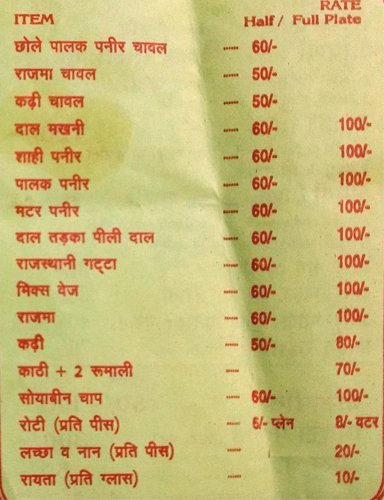 RATE
ITEM Half / Full Plate
छोले पालक पनीर चावल — 60/-
राजमा चावल — 50/-
कढ़ी चावल — 50/-
दाल मखनी — 60/- 100/-
शाही पनीर — 60/- 100/-
पालक पनीर — 60/- 100/-
मटर पनीर — 60/- 100/-
दाल तड़का पीली दाल — 60/- 100/-
राजस्थानी गट्टा — 60/- 100/-
मिक्स वेज — 60/- 100/-
राजमा — 60/- 100/-
कढ़ी — 50/- 80/-
काठी + 2 रूमाली — 70/-
सोयाबीन चाप — 60/- 100/-
रोटी (प्रति पीस) — 6/- प्लेन 8/- बटर
लच्छा व नान (प्रति पीस) — 20/-
रायता (प्रति ग्लास) — 10/-